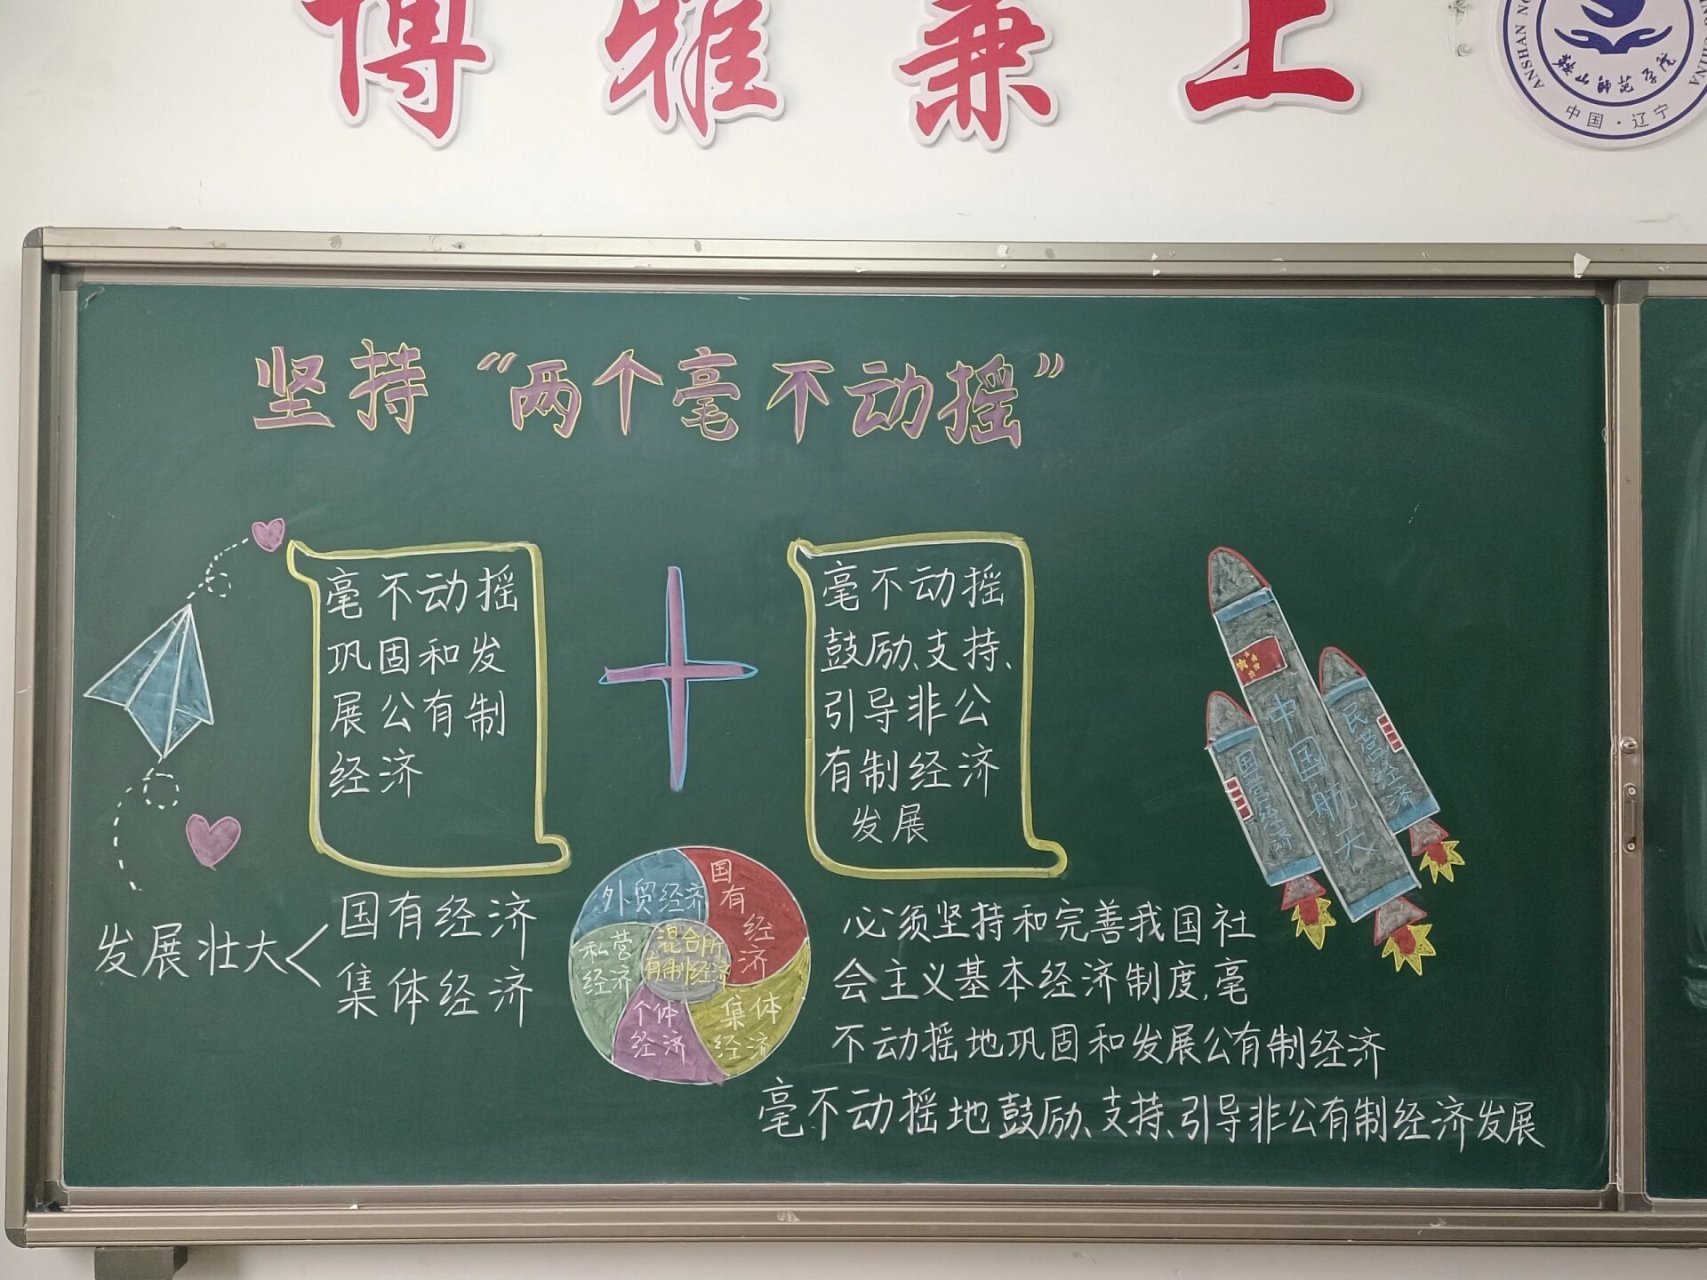 博雅兼上
ANSHAN NO
鞍山师范学院
中国·辽宁
坚持“两个毫不动摇”
毫不动摇
巩固和发
展公有制
经济
毫不动摇
鼓励、支持、
引导非公
有制经济
发展
中国航天
国营经济
民营经济
发展壮大
国有经济
集体经济
外贸经济
国有经济
私营经济
混合所有制经济
个体经济
集体经济
必须坚持和完善我国社
会主义基本经济制度,毫
不动摇地巩固和发展公有制经济
毫不动摇地鼓励、支持、引导非公有制经济发展